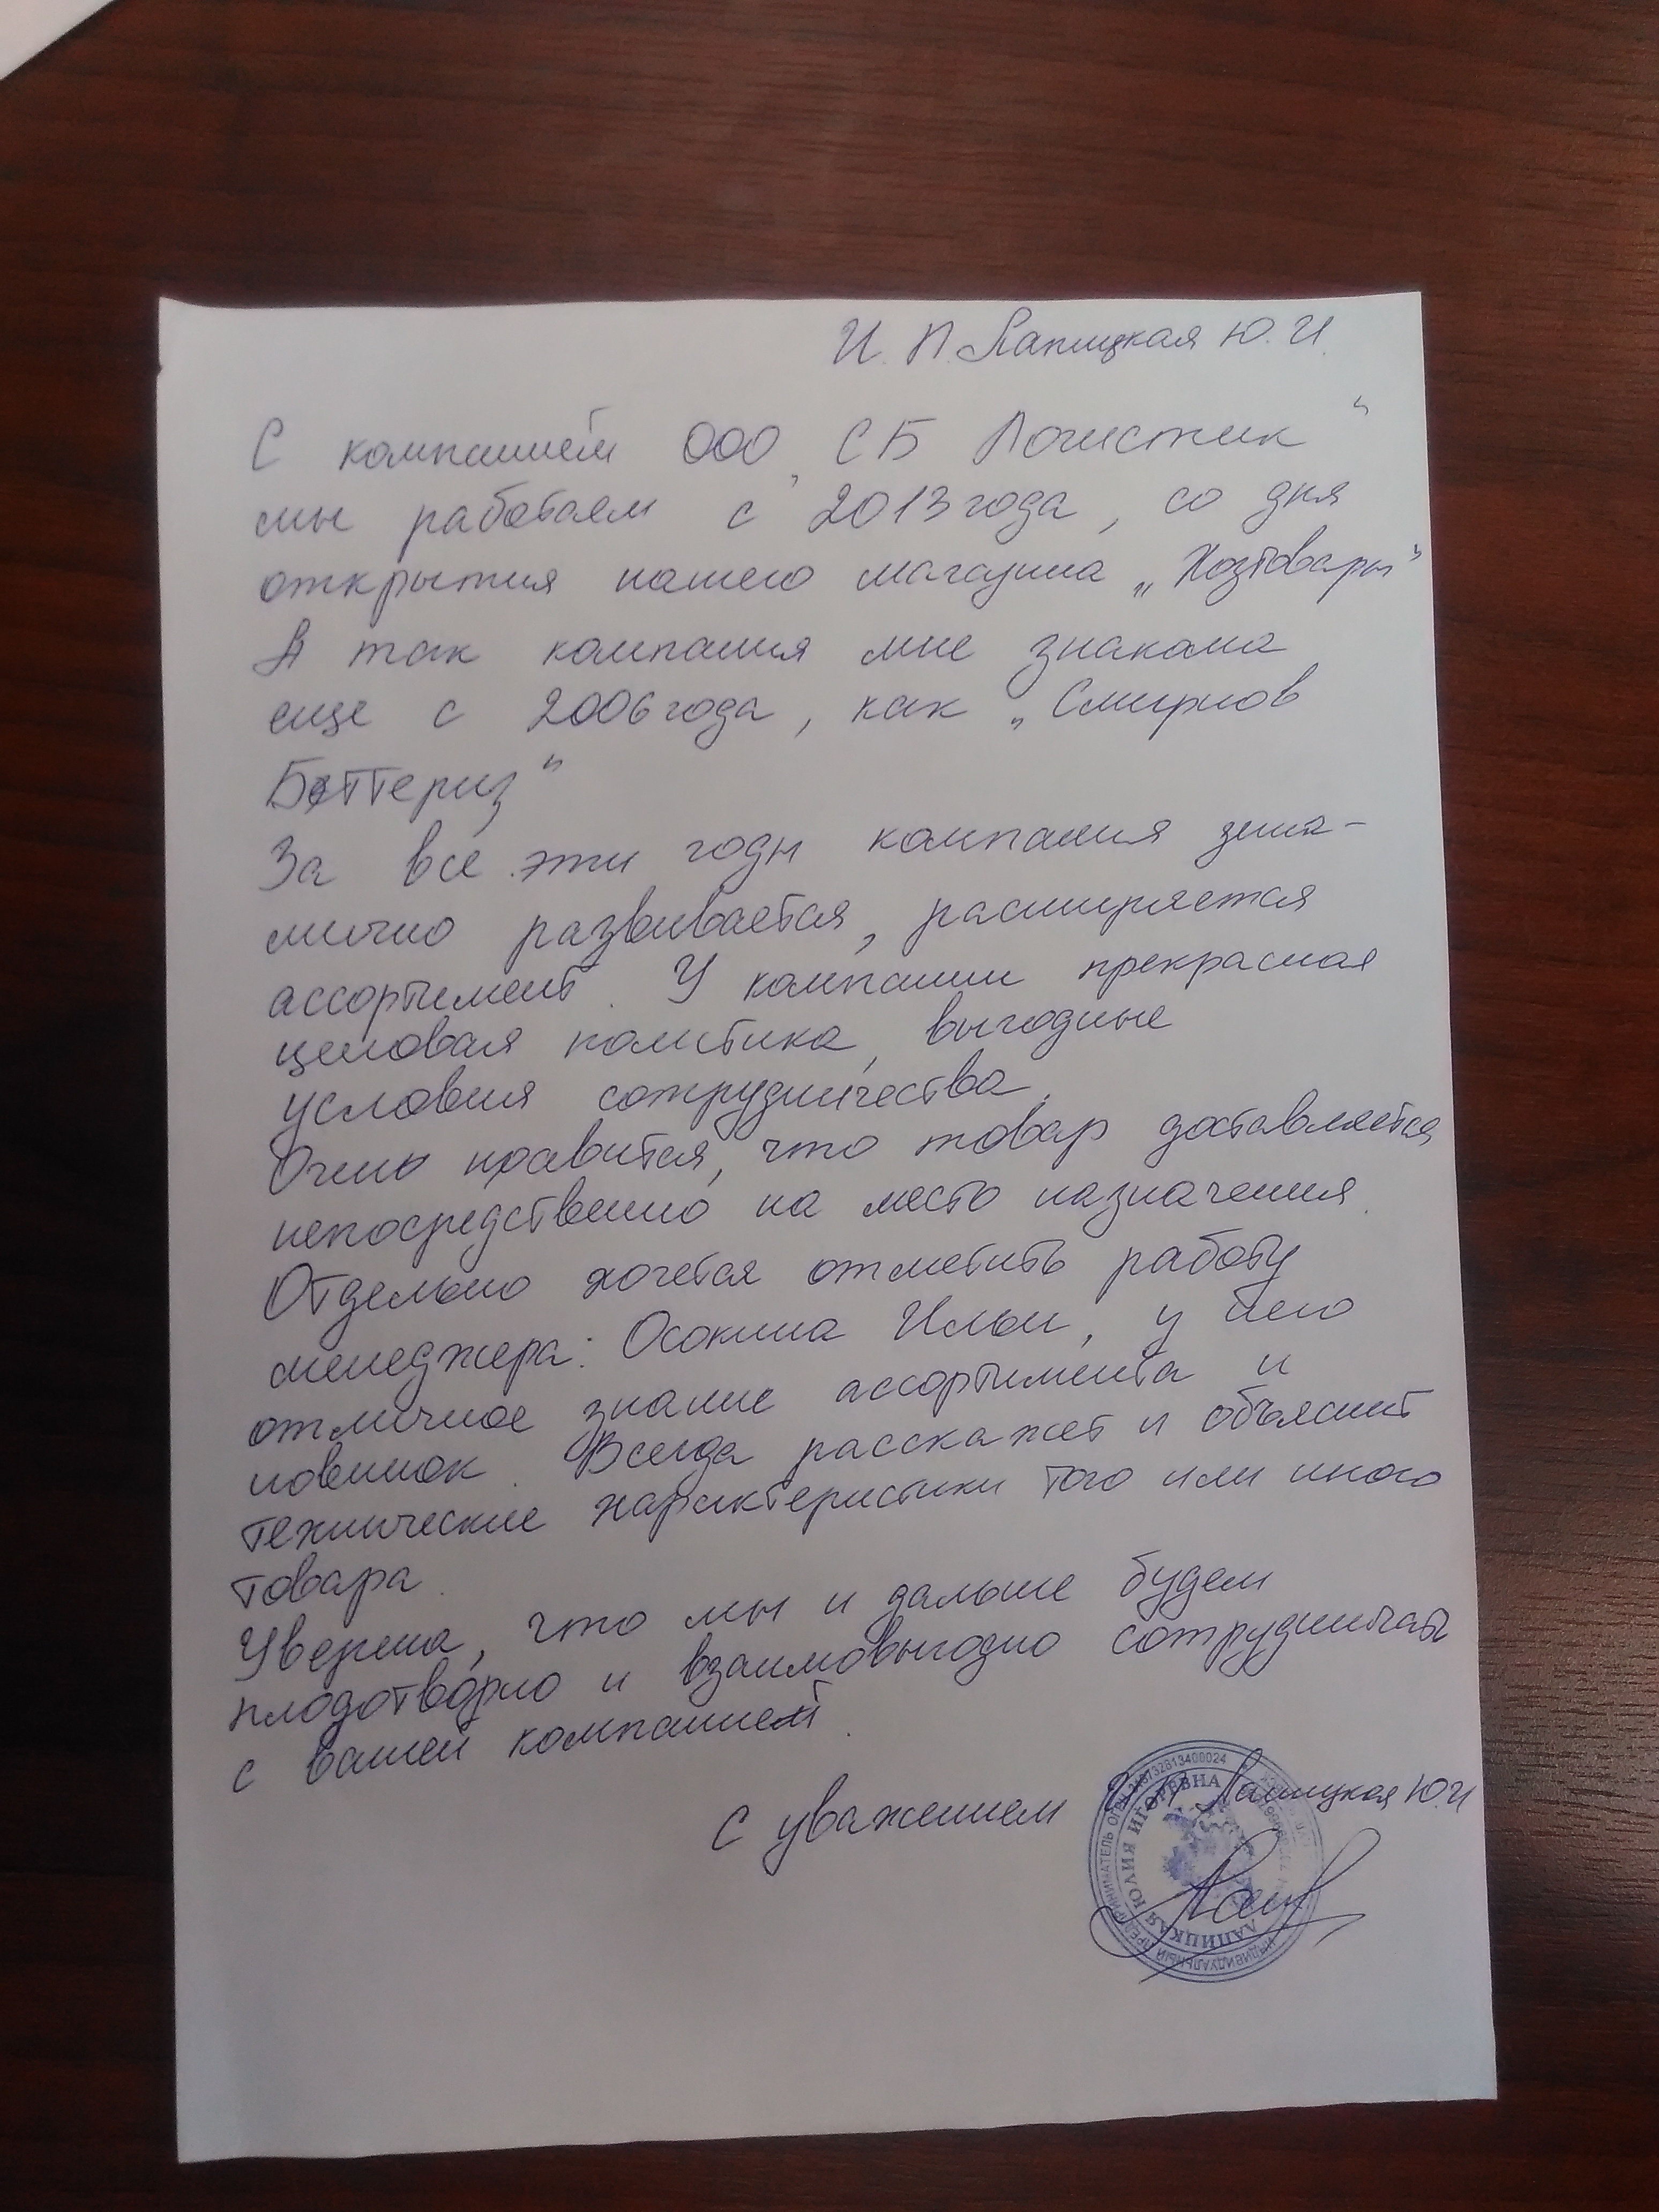 И. П. Лапицкая Ю. И.
С компанией ООО „СБ Логистик“
мы работаем с 2013 года, со дня
открытия нашего магазина „Хозтовары“
А так компания мне знакома
еще с 2006 года, как „Смирнов
Бэттериз“
За все эти годы компания дина-
мично развивается, расширяется
ассортимент. У компании прекрасная
ценовая политика, выгодные
условия сотрудничества.
Очень нравится, что товар доставляется
непосредственно на место назначения.
Отдельно хочется отметить работу
менеджера: Осокина Ильи, у него
отличное знание ассортимента и
новинок. Всегда расскажет и объяснит
технические характеристики того или иного
товара.
Уверена, что мы и дальше будем
плодотворно и взаимовыгодно сотрудничать
с вашей компанией.
С уважением Лапицкая Ю.И
ИНДИВИДУАЛЬНЫЙ ПРЕДПРИНИМАТЕЛЬ
ЛАПИЦКАЯ ЮЛИЯ ИГОРЕВНА